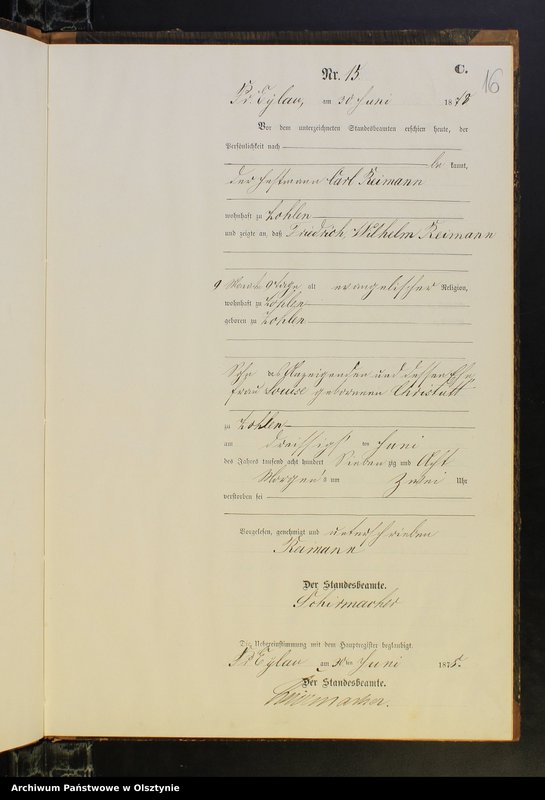 Nr. 15
C.
16
Pr. Eylau, am 30 Juni 1878
Vor dem unterzeichneten Standesbeamten erschien heute, der
Persönlichkeit nach
be kannt,
der Instmann Carl Reimann
wohnhaft zu Lohlen
und zeigte an, daß Friedrich Wilhelm Reimann
9 Monate 9 Tage alt evangelischer Religion,
wohnhaft zu Lohlen
geboren zu Lohlen
Sohn des Anzeigenden und dessen Ehe
frau Louise geborenen
zu Lohlen
am dreissigsten Juni
des Jahres tausend acht hundert Sieben zig und Acht
Morgens um Zwei Uhr
verstorben sei
Vorgelesen, genehmigt und unterschrieben
Reimann
Der Standesbeamte.
Schirmacher
Die Uebereinstimmung mit dem Hauptregister beglaubigt.
Pr. Eylau am 30 ten Juni 187
Der Standesbeamte.
Schirmacher.
Archiwum Państwowe w Olsztynie